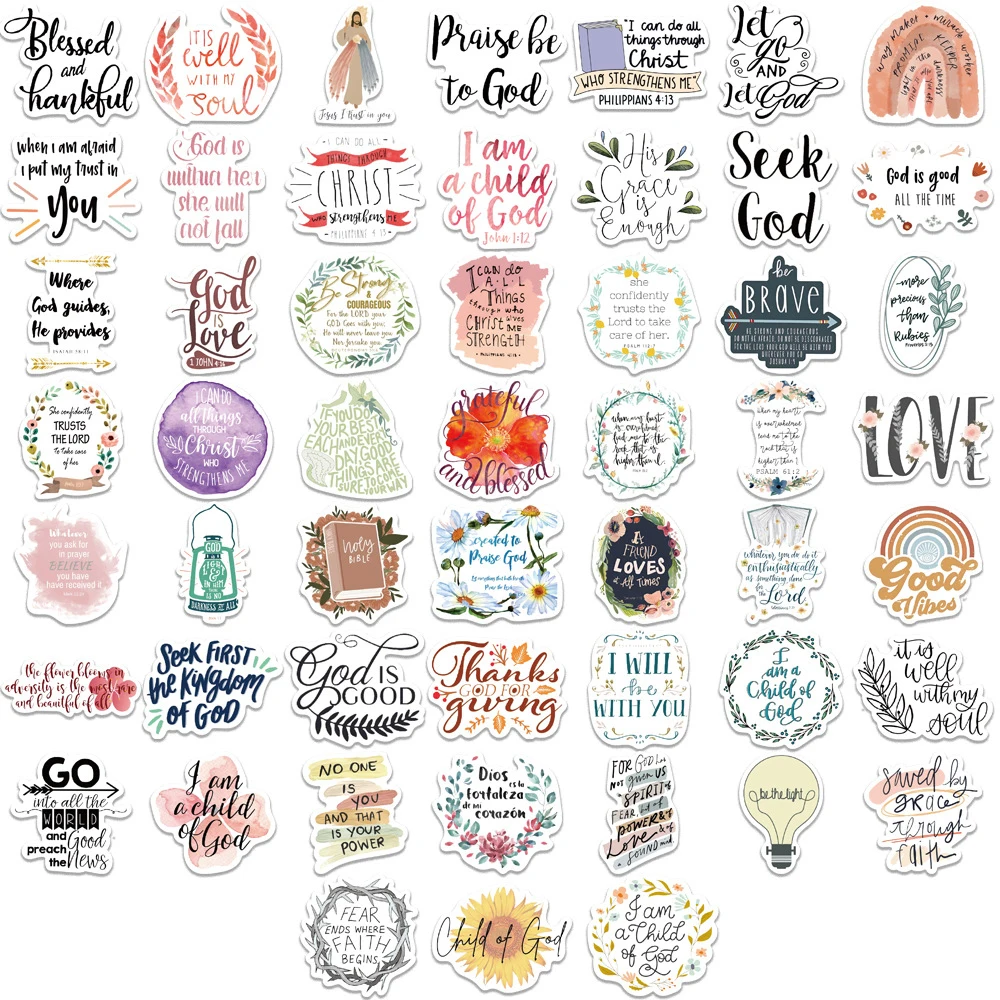 Blessed
and
thankful
IT IS
well
WITH MY
soul
Jesus I trust in you
Praise be
to God
"I can do all
things through
Christ
WHO STRENGTHENS ME."
PHILIPPIANS 4:13
Let
go
AND
Let God
way maker • miracle worker
PROMISE KEEPER
light in the darkness
When I am afraid
I put my trust in
You
God is
within her
she will
not fall
I CAN DO ALL
THINGS THROUGH
CHRIST
WHO strengthens ME
PHILIPPIANS 4:13
I am
a child
of God
John 1:12
His
Grace
is
Enough
Seek
God
God is good
ALL THE TIME
Where
God guides,
He provides
ISAIAH 58:11
God
IS
Love
1 JOHN 4:16
Be Strong
&
COURAGEOUS
For the LORD your
GOD Goes with you;
He will never leave you
Nor forsake you
I CAN do
A·L·L
Things
through who
CHRIST GIVES
ME
STRENGTH
she
confidently
trusts the
Lord to take
care of her.
PSALM 112:7
be
BRAVE
BE STRONG AND COURAGEOUS
DO NOT BE AFRAID; DO NOT BE DISCOURAGED
FOR THE LORD YOUR GOD WILL BE WITH YOU
WHEREVER YOU GO
JOSHUA 1:9
more
precious
than
Rubies
PROVERBS 3:15
She confidently
TRUSTS
THE LORD
To take
care of
her
I CAN DO
all things
THROUGH
Christ
WHO
STRENGTHENS ME
IF YOU DO
YOUR BEST
EACH AND EVERY
DAY
THINGS ARE
SURE TO COME
YOUR WAY
grateful
and blessed
when my heart
is overwhelmed
lead me to the
rock that is
higher than I.
When my heart
is overwhelmed
lead me to the
rock that is
higher than I
PSALM 61:2
LOVE
Whatever
you ask for
in prayer
BELIEVE
you have
have received it
GOD
IS
LIGHT
&
IN HIM
IS NO
DARKNESS AT ALL
HOLY
BIBLE
created to
Praise God
Let everything that hath breath
Praise the Lord
A
FRIEND
LOVES
at All Times
whatever you do do it
enthusiastically
as something done
for the
Lord
Good
Vibes
the flower blooms in
adversity is the most rare
and beautiful of all
SEEK FIRST
the KINGDOM
OF GOD
God IS
GOOD
Thanks
GOD FOR
giving
I WILL
be
WITH YOU
I
am a
Child of
God
it is
well
with my
soul
GO
into all the
WORLD
and
preach
the
Good
News
I am
a child
of God
NO ONE
IS
YOU
AND THAT
IS YOUR
POWER
Dios
es la
fortaleza
de mi
corazón
FOR GOD has
NOT given US
a SPIRIT of
FEAR, but of
POWER & of
Love & of
a SOUND mind.
be the light
saved by
grace
through
faith
FEAR
ENDS WHERE
FAITH
BEGINS
Child of God
I am
a Child
of God